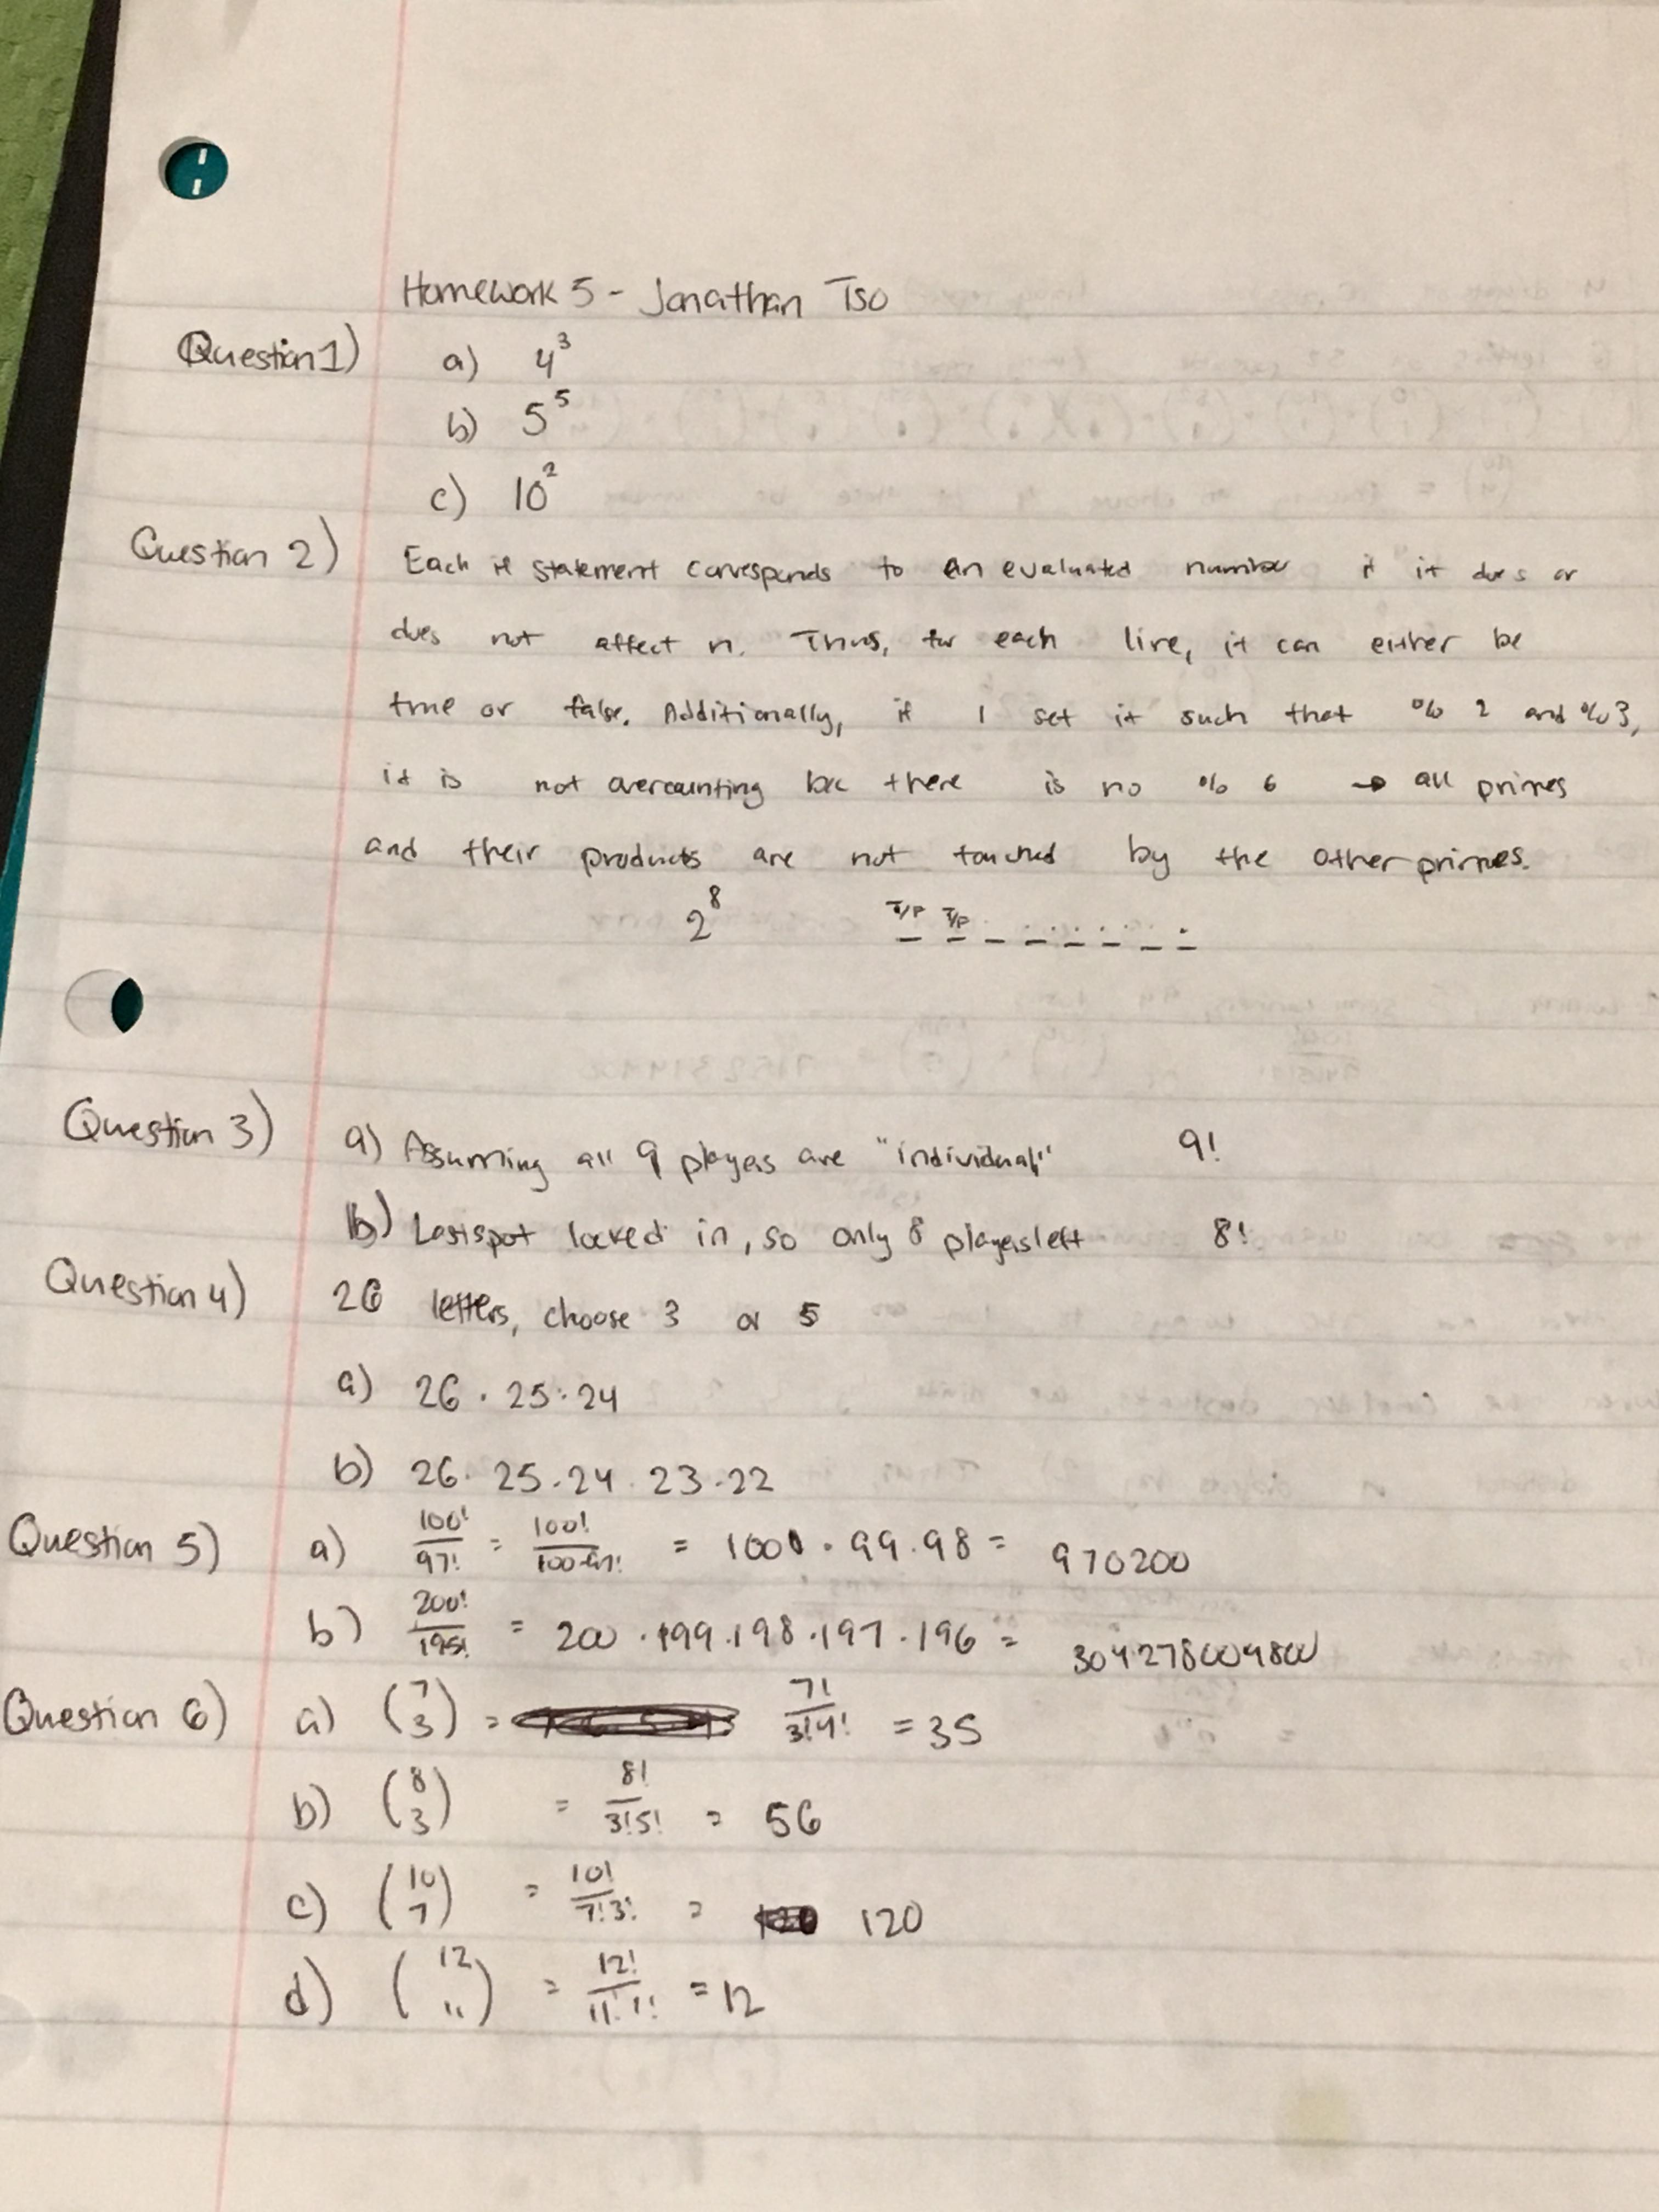 Homework 5 - Jonathan Tso
Question 1) a) 4³
b) 5⁵
c) 10²
Question 2) Each if statement corresponds to an evaluated number if it does or
does not affect n. Thus, for each line, it can either be
true or false. Additionally, if I set it such that % 2 and % 3,
it is not overcounting b/c there is no % 6 → all primes
and their products are not touched by the other primes.
2⁸ T/F T/F _ _ _ _ _ _
Question 3) a) Assuming all 9 players are "individual" 9!
b) Last spot locked in, so only 8 players left 8!
Question 4) 26 letters, choose 3 or 5
a) 26 · 25 · 24
b) 26 · 25 · 24 · 23 · 22
Question 5) a) 100!/97! = 100!/100-97! = 100 · 99 · 98 = 970200
b) 200!/195! = 200 · 199 · 198 · 197 · 196 = 304278004800
Question 6) a) (7 3) = 7!/3!4! = 35
b) (8 3) = 8!/3!5! = 56
c) (10 7) = 10!/7!3! = 120
d) (12 11) = 12!/11!1! = 12